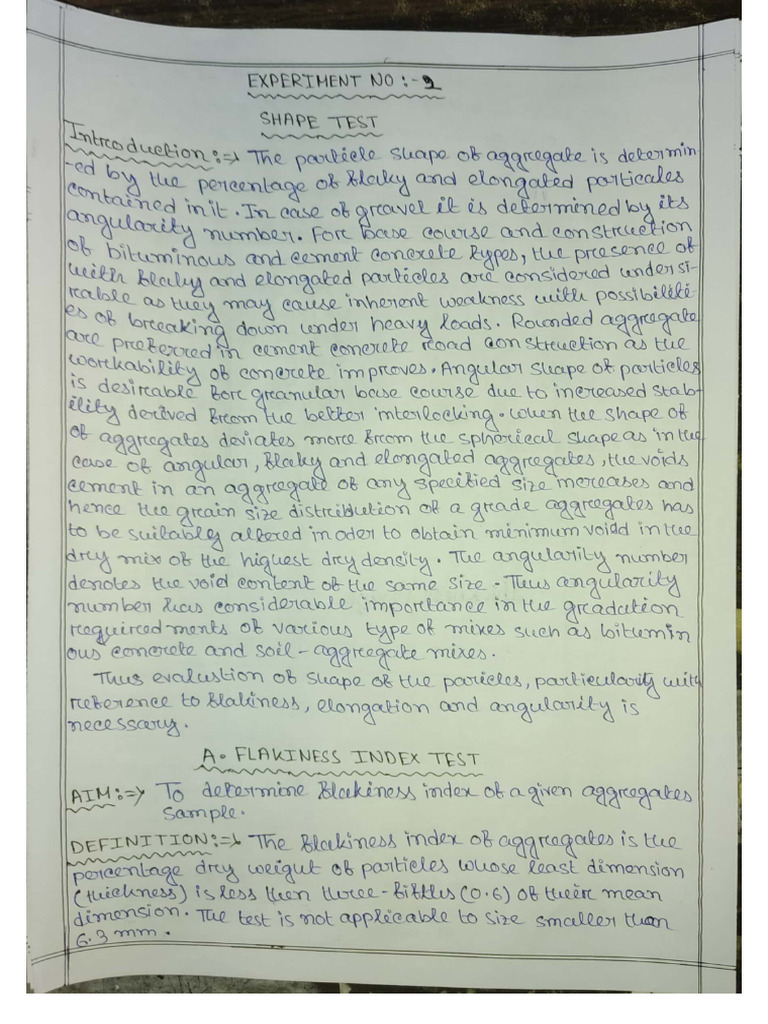 EXPERIMENT NO :- 2
SHAPE TEST
Introduction :=> The particle shape of aggregate is determin-
-ed by the percentage of flaky and elongated particales
contained in it. In case of greavel it is determined by its
angularity number. Fore base course and construction
of bituminous and cement concrete types, the presence of
with flaky and elongated particles are considered undersi-
reable as they may cause inherent weakness with possibiliti-
es of breaking down under heavy loads. Rounded aggregate
are preferred in cement concrete road construction as the
workability of concrete improves. Angular shape of particles
is desireable fore greanular base course due to increased stab-
ility derived from the better interlocking. When the shape of
of aggregates deviates more from the spherical shape as in the
case of angular, flaky and elongated aggregates, the voids
cement in an aggregate of any specified size increases and
hence the grain size distribution of a grade aggregates has
to be suitably altered in oder to obtain minimum void in the
dry mix of the highest dry density. The angularity number
denotes the void content of the same size - Thus angularity
number has considerable importance in the gradation
requiredments of various type of mixes such as bitumin
ous concrete and soil-aggregate mixes.
Thus evalustion of shape of the paricles, particularity with
reference to flakiness, elongation and angularity is
necessary.
A. FLAKINESS INDEX TEST
AIM :=> To determine flakiness index of a given aggregates
sample.
DEFINITION :=> The flakiness index of aggregates is the
percentage dry weight of particles whose least dimension
(thickness) is less then three-fifths (0.6) of their mean
dimension. The test is not applicable to size smaller than
6.3 mm.